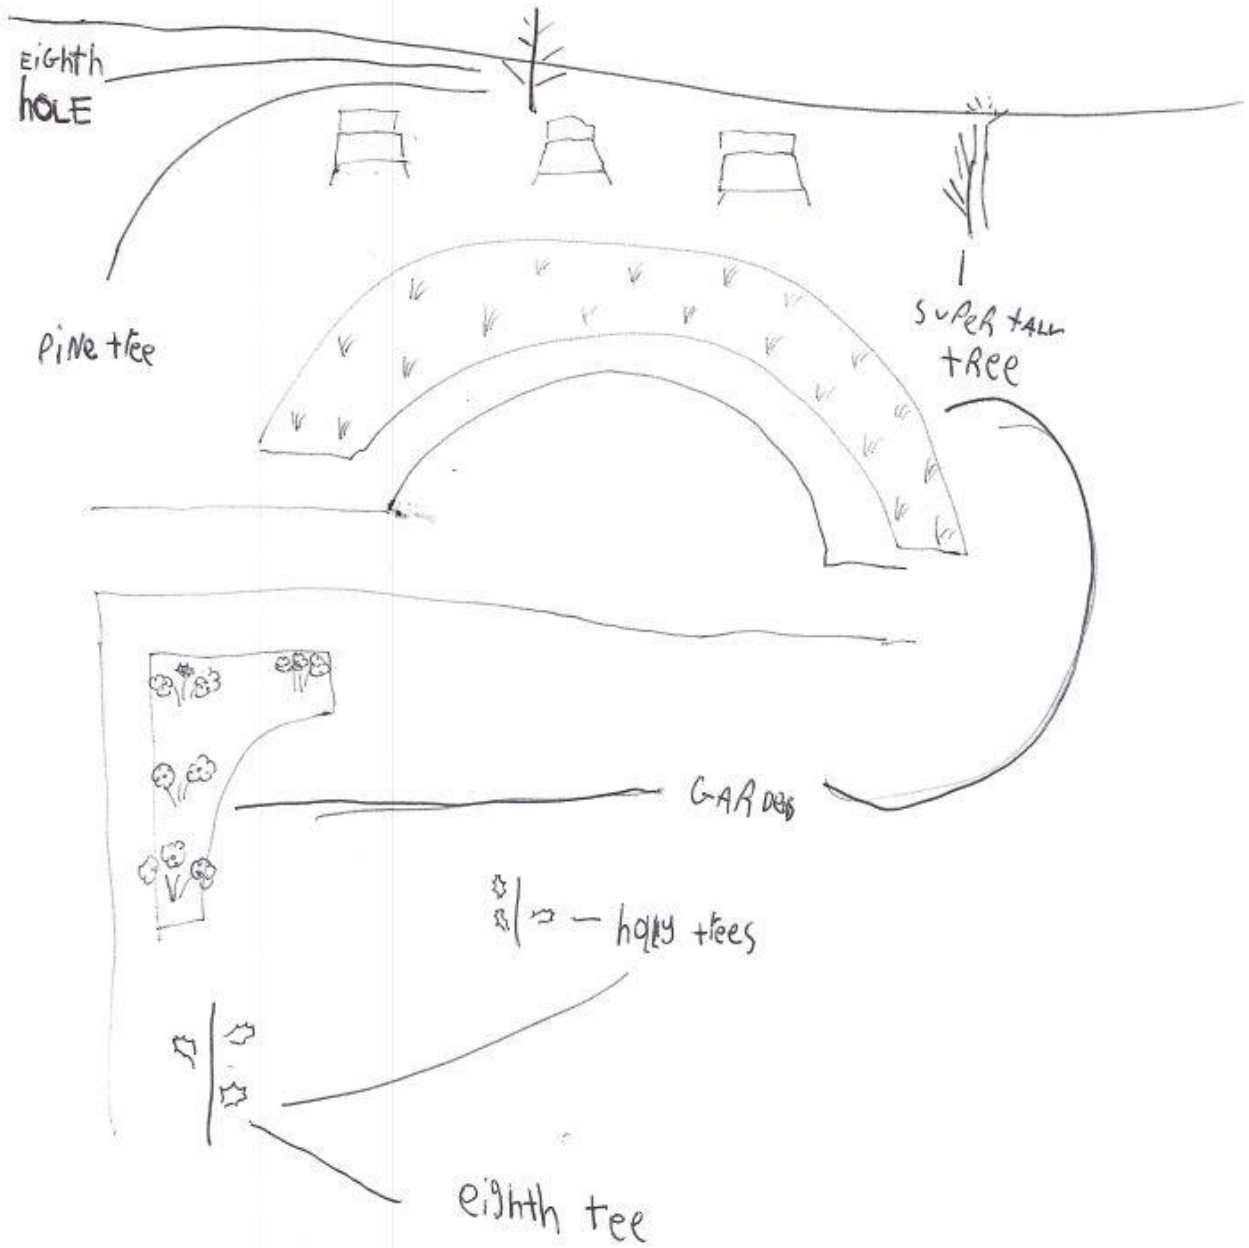 EiGhth
hOLE
PiNe tree
SuPeR tALL
tRee
GARDeN
holly trees
eighth tee